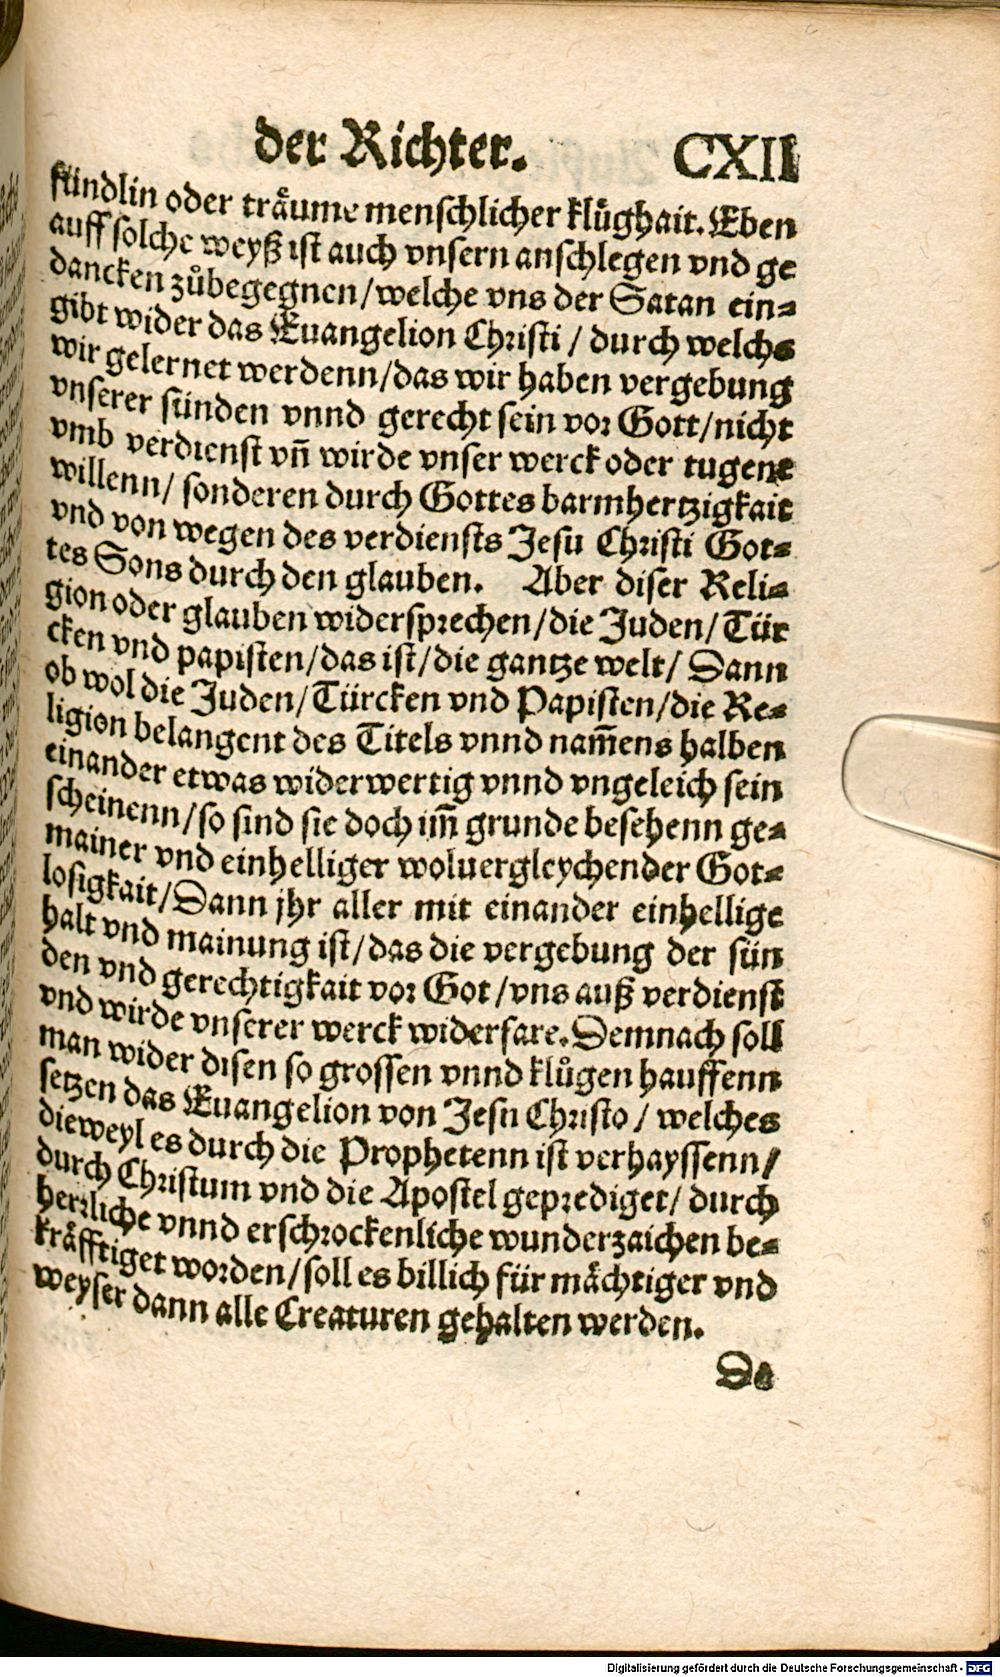 der Richter. CXII
fündlin oder träume menschlicher klůghait. Eben
auff solche weyß ist auch vnsern anschlegen vnd ge
dancken zůbegegnen/welche vns der Satan ein⸗
gibt wider das Euangelion Christi / durch welchs
wir gelernet werdenn/das wir haben vergebung
vnserer sünden vnnd gerecht sein vor Gott/nicht
vmb verdienst vñ wirde vnser werck oder tugent
willenn/ sonderen durch Gottes barmhertzigkait
vnd von wegen des verdiensts Jesu Christi Got⸗
tes Sons durch den glauben. Aber diser Reli⸗
gion oder glauben widersprechen/die Juden/Tür
cken vnd papisten/das ist/die gantze welt/ Dann
ob wol die Juden/Türcken vnd Papisten/die Re⸗
ligion belangent des Titels vnnd nam̃ens halben
einander etwas widerwertig vnnd vngeleich sein
scheinenn/so sind sie doch im̃ grunde besehenn ge⸗
mainer vnd einhelliger woluergleychender Got⸗
losigkait/Dann jhr aller mit einander einhellige
halt vnd mainung ist/das die vergebung der sün
den vnd gerechtigkait vor Got/vns auß verdienst
vnd wirde vnserer werck widerfare. Demnach soll
man wider disen so grossen vnnd klůgen hauffenn
setzen das Euangelion von Jesu Christo/ welches
dieweyl es durch die Prophetenn ist verhayssenn/
durch Christum vnd die Apostel geprediget/ durch
herrliche vnnd erschrockenliche wunderzaichen be⸗
kräfftiget worden/soll es billich für mächtiger vnd
weyser dann alle Creaturen gehalten werden.
De
Digitalisierung gefördert durch die Deutsche Forschungsgemeinschaft - DFG